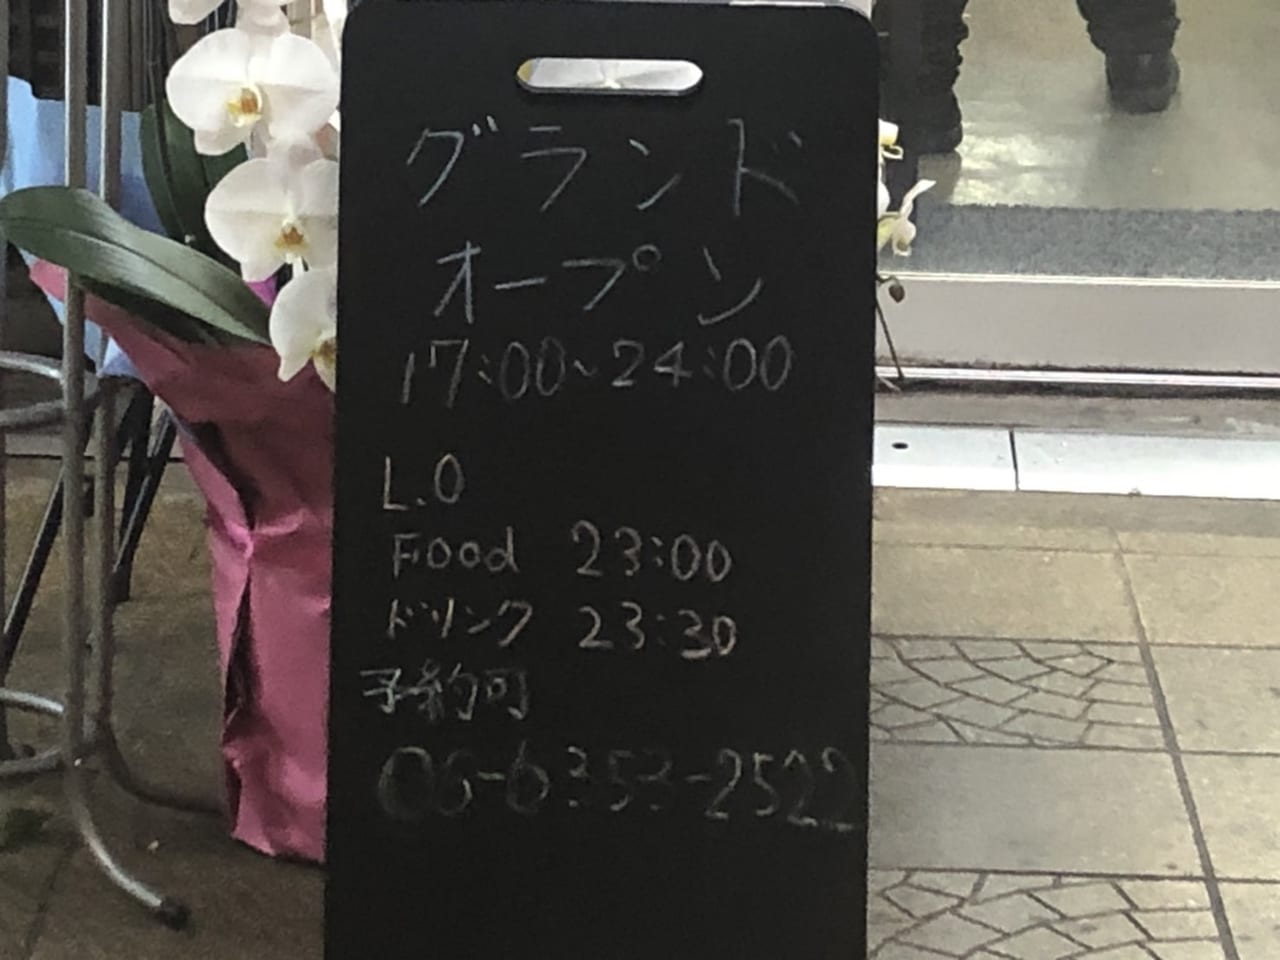 グランド
オープン
17:00~24:00
L.O
Food 23:00
ドリンク 23:30
予約可
06-6353-2522